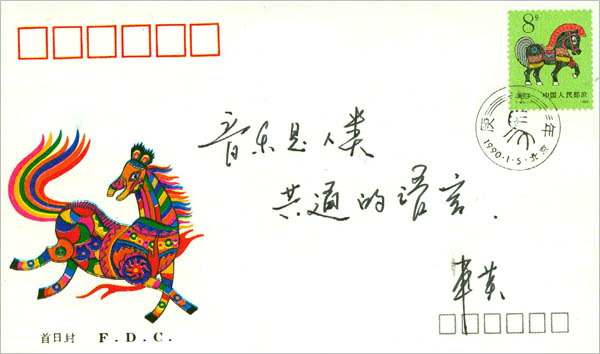 8分
中国人民邮政
庚午年
1990·1·5·北京
音乐是人类
共通的语言.
首日封 F.D.C.